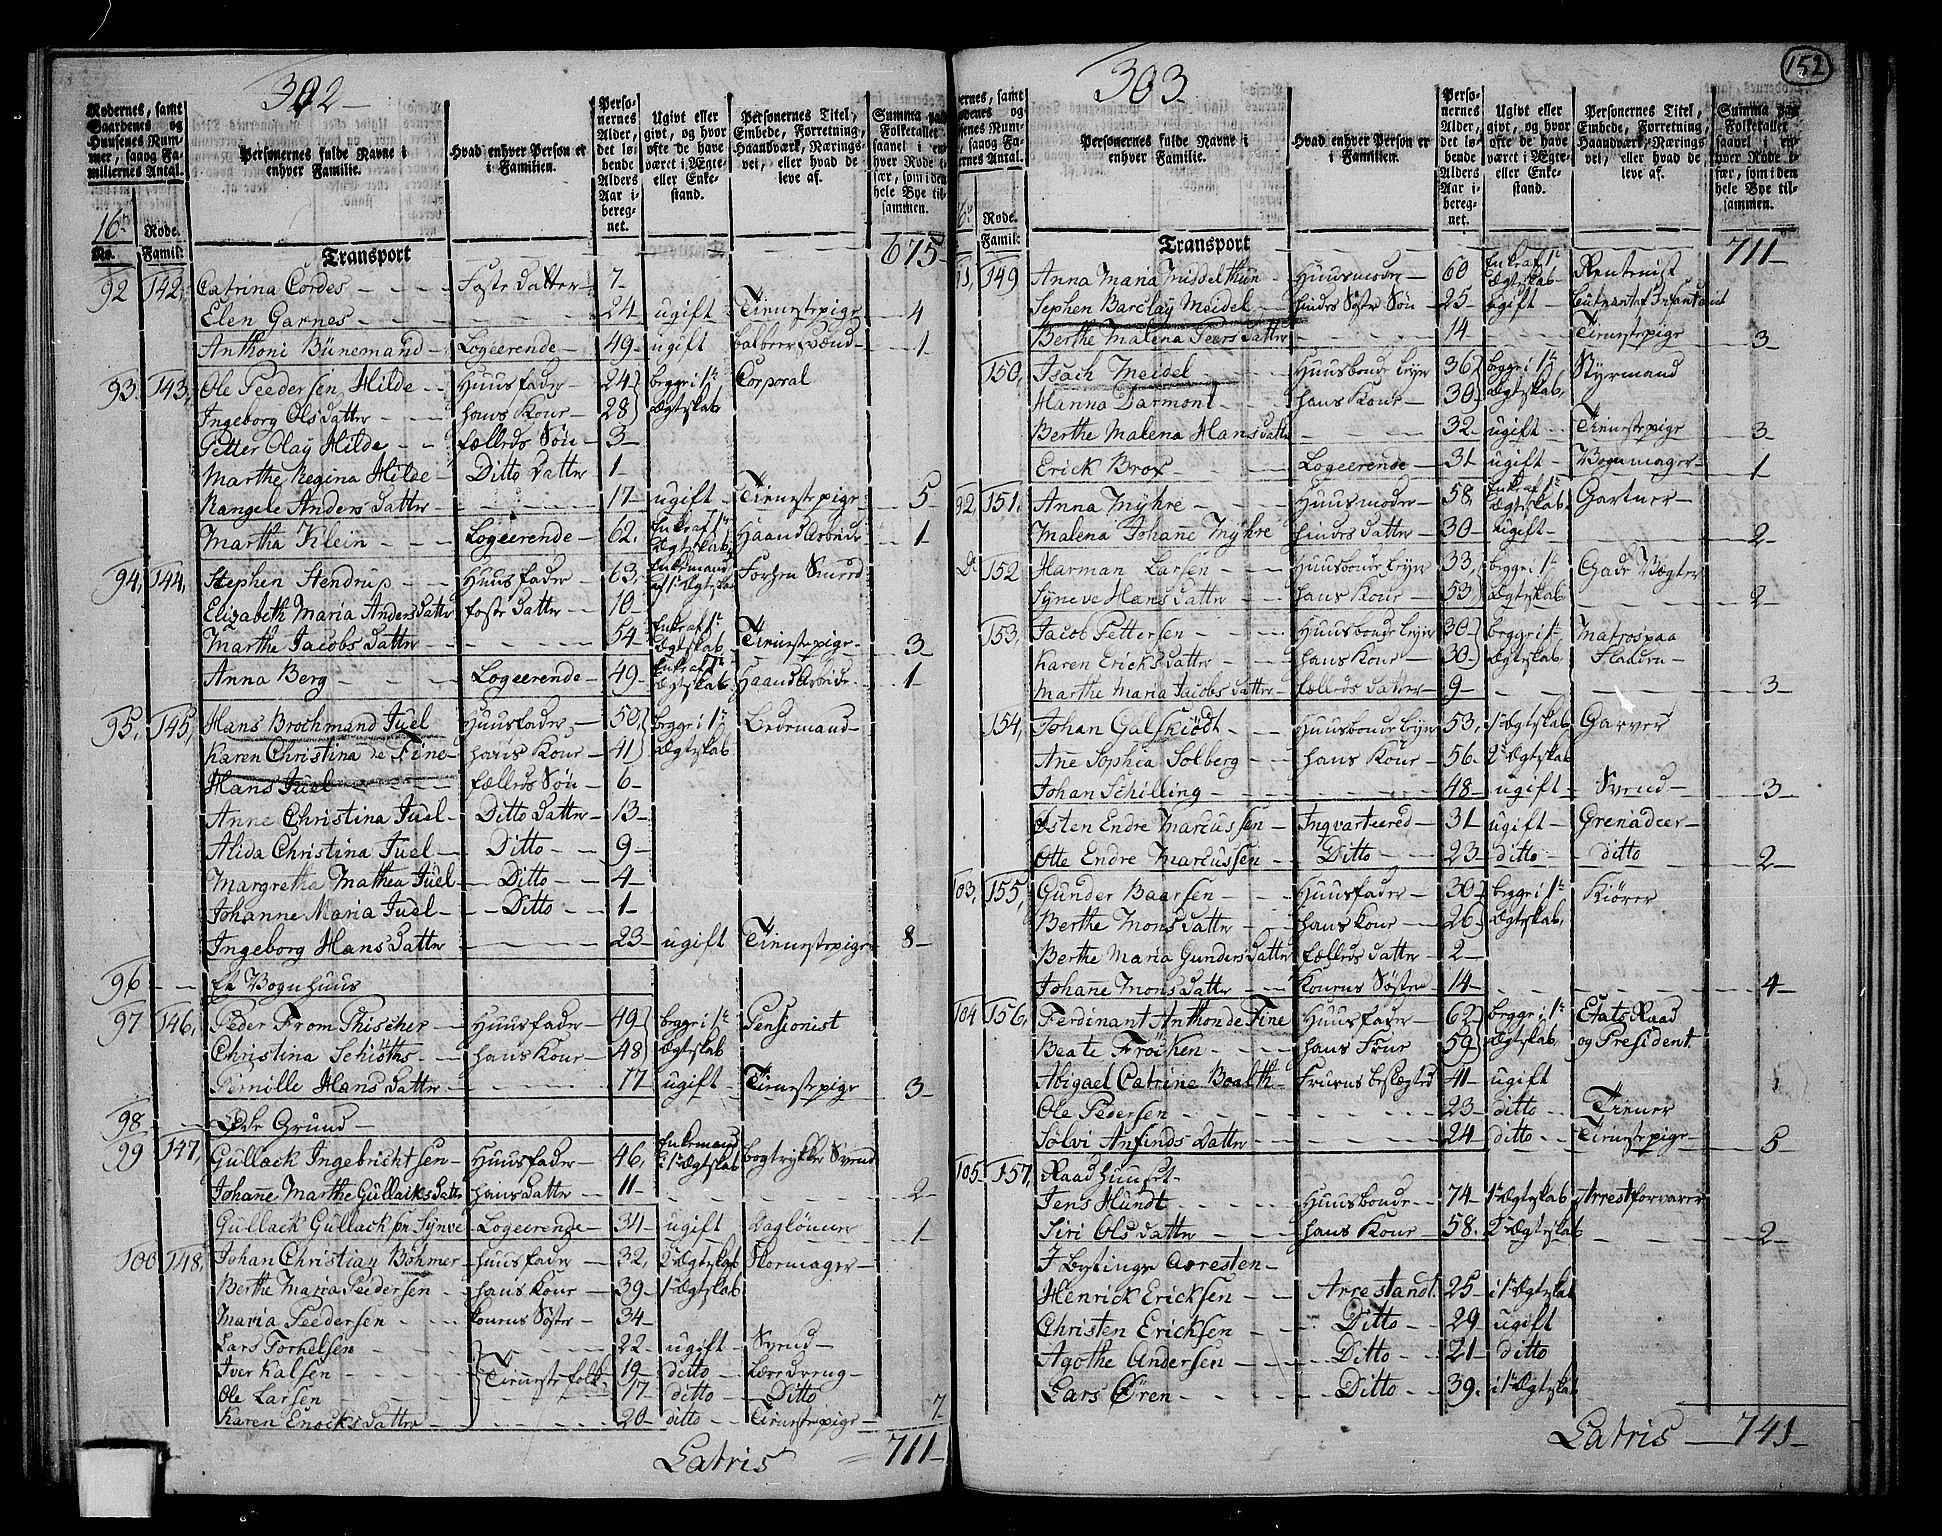 302
Rodernes, samt Gaardenes og Huusenes Nummer, saaog Familiernes Antal.
Personernes fulde Navne i enhver Familie.
Hvad enhver Person er i Familien.
Personernes Alder, det løbende Alders Aar iberegnet.
Ugivt eller givt, og hvor ofte de have været i Ægte- eller Enkestand.
Personernes Titel, Embede, Forretning, Haandværk, Næringsvei, eller hvad de leve af.
Summa paa Folketallet saavel i enhver Rode især, som i den hele Bye tilsammen.
16de Rode.
No. Famil:
Transport 675
92 142, Catrina Cordes Foste Datter 7
Elen Garnes 24 ugift Tienestepige 4
Anthoni Bünemand Logeerende 49 ugift balberer Svend 1
93 143, Ole Peedersen Hilde Huusfader 24 begge i 1te Corporal
Ingeborg Olsdatter hans Kone 28 Ægteskab
Petter Olay Hilde fælleds Søn 3
Marthe Regina Hilde Ditto Datter 1
Rangele Andersdatter 17 ugift Tienestepige 5
Martha Klein Logeerende 62 Enke af 1te Ægteskab HaandArbeide 1
94, 144, Stephen Stendrup Huusfader 63, Enkemand af 1te Ægteskab
Elizabeth Maria Andersdatter foste Datter 10
Marthe Jacobsdatter 54 Enke af 1te Ægteskab Tienestepige 3
Anna Berg Logeerende 49 Enke af 1te Ægteskab HaandArbeide 1
95, 145, Hans Brochmand Juel Huusfader 50 begge i 1te
Karen Christina de Fine hans Kone 41 Ægteskab
Hans Juel fælleds Søn 6
Anne Christina Juel Ditto Datter 13
Alida Christina Juel Ditto 9
Margretha Mathea Juel Ditto 4
Johanne Maria Juel Ditto 1
Ingeborg Hansdatter 23 ugift Tienestepige 8
96 Et Vognhuus
97 146, Peder From Thischer Huusfader 49 begge i 1te Pensionist
Christina Schiøths hans Kone 48 Ægteskab
Pernille Hansdatter 17 ugift Tienestepige 3
98 Øde Grund
99 147, Gullack Ingebrichtsen Huusfader 46, Enkemand Ægteskab bogtrykker Svend
Johane Marthe Gullacksdatter hans Datter 11 2
Gullack Gullacksen Synve Logeerende 34 ugift Dagløner 1
100 148, Johan Christian Böhmer Huusfader 32, 2de Ægteskab Skomager
Berthe Maria Peedersen hans Kone 39 1te Ægteskab
Maria Peedersen konens Søster 34
Lars Torkelsen 22 ugift Svend
Iver Kalsen Tieneste folk 19 ditto Læredreng
Ole Larsen 17 ditto Ditto
Karen Enocksdatter 20 ditto Tienestepige 7
Latris 711
303
152
Rode.
Famil:
Personernes fulde Navne i enhver Familie.
Hvad enhver Person er i Familien.
Personernes Alder, det løbende Alders Aar iberegnet.
Ugivt eller givt, og hvor ofte de have været i Ægte- eller Enkestand.
Personernes Titel, Embede, Forretning, Haandværk, Næringsvei, eller hvad de leve af.
Summa paa Folketallet saavel i enhver Rode især, som i den hele Bye tilsammen.
Transport 711
149 Anna Maria Middelthun Huusmoder 60 Enke af 1te Ægteskab Rentenist
Sephen Barclay Meidel hindes Søster Søn 25 ugift Lieutnant af Infanteriet
Berthe Malena Peersdatter 14 Tienestepige 3
150, Isach Meidel Huusbonde leyer 36 begge i 1te Styrmand
Hanna Darmont hans Kone 30 Ægteskab,
Berthe Malena Hansdatter 32 ugift Tienestepige 3
Erick Brox Logeerende 31 ugift Vognmager 1
92 151, Anna Myhre Huusmoder 58 Enke af 1te Ægteskab, Gartner
Malena Johane Myhre hindes Datter 30 ugift 2
Do 152 Harman Larsen Huusbonde leyer 33, begge i 1te Gade Vægter
Syneve Hansdatter hans Kone 53 Ægteskab 2
153, Jacob Pettersen Huusbonde leyer 30 begge i 1te Matros paa
Karen Ericksdatter hans Kone 30 Ægteskab Flaaden
Marthe Maria Jacobsdatter fælleds Datter 9 3
154, Johan Galskiödt Huusbonde leyer 53, 1te Ægteskab Garver
Ane Sophia Solberg hans Kone 56 2de Ægteskab
Johan Schilling 48 ugift Svend 3
Østen Endre Marcussen Inqvarteered 31 ugift Grenadeer
Otte Endre Marcussen Ditto 23 ditto ditto 2
103, 155, Gunder Baarsen Huusfader 30 begge i 1te Kiører
Berthe Monsdatter hans kone 26 Ægteskab,
Berthe Maria Gundersdatter fælleds Datter 2
Johane Monsdatter Konens Søster 14 4
104 156, Ferdinant Anthon de Fine Huusfader 62 begge i 1te Etats Raad
Beate Fröcken hans Frue 59 Ægteskab og President
Abigael Catrine Boalth Fruens beslægted 41 ugift
Ole Pedersen 23 ditto Tiener
Sølvi Anfindsdatter 24 ditto Tienestepige 5
105 157, Raadhuuset
Jens Hundt Huusbonde 74 1te Ægteskab Arrestforvarer
Siri Olsdatter hans Kone 58 2de Ægteskab 2
I Bytings Arresten
Henrick Ericksen Arrestandt 25 i 1te Ægteskab
Christen Ericksen Ditto 29 ugift
Agothe Andersen Ditto 21 ditto
Lars Øren Ditto 39 i 1te Ægteskab
Latris 741